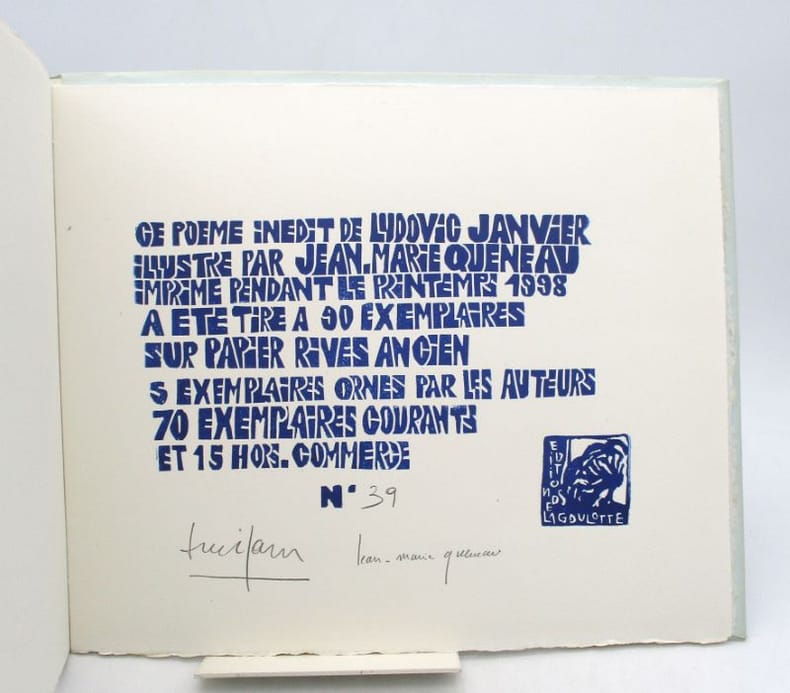 CE POEME INEDIT DE LUDOVIC JANVIER
ILLUSTRE PAR JEAN-MARIE QUENEAU
IMPRIME PENDANT LE PRINTEMPS 1998
A ETE TIRE A 90 EXEMPLAIRES
SUR PAPIER RIVES ANCIEN
5 EXEMPLAIRES ORNES PAR LES AUTEURS
70 EXEMPLAIRES COURANTS
ET 15 HORS-COMMERCE
N° 39
Jean-Marie Queneau
EDITIONS DE LA GOULOTTE